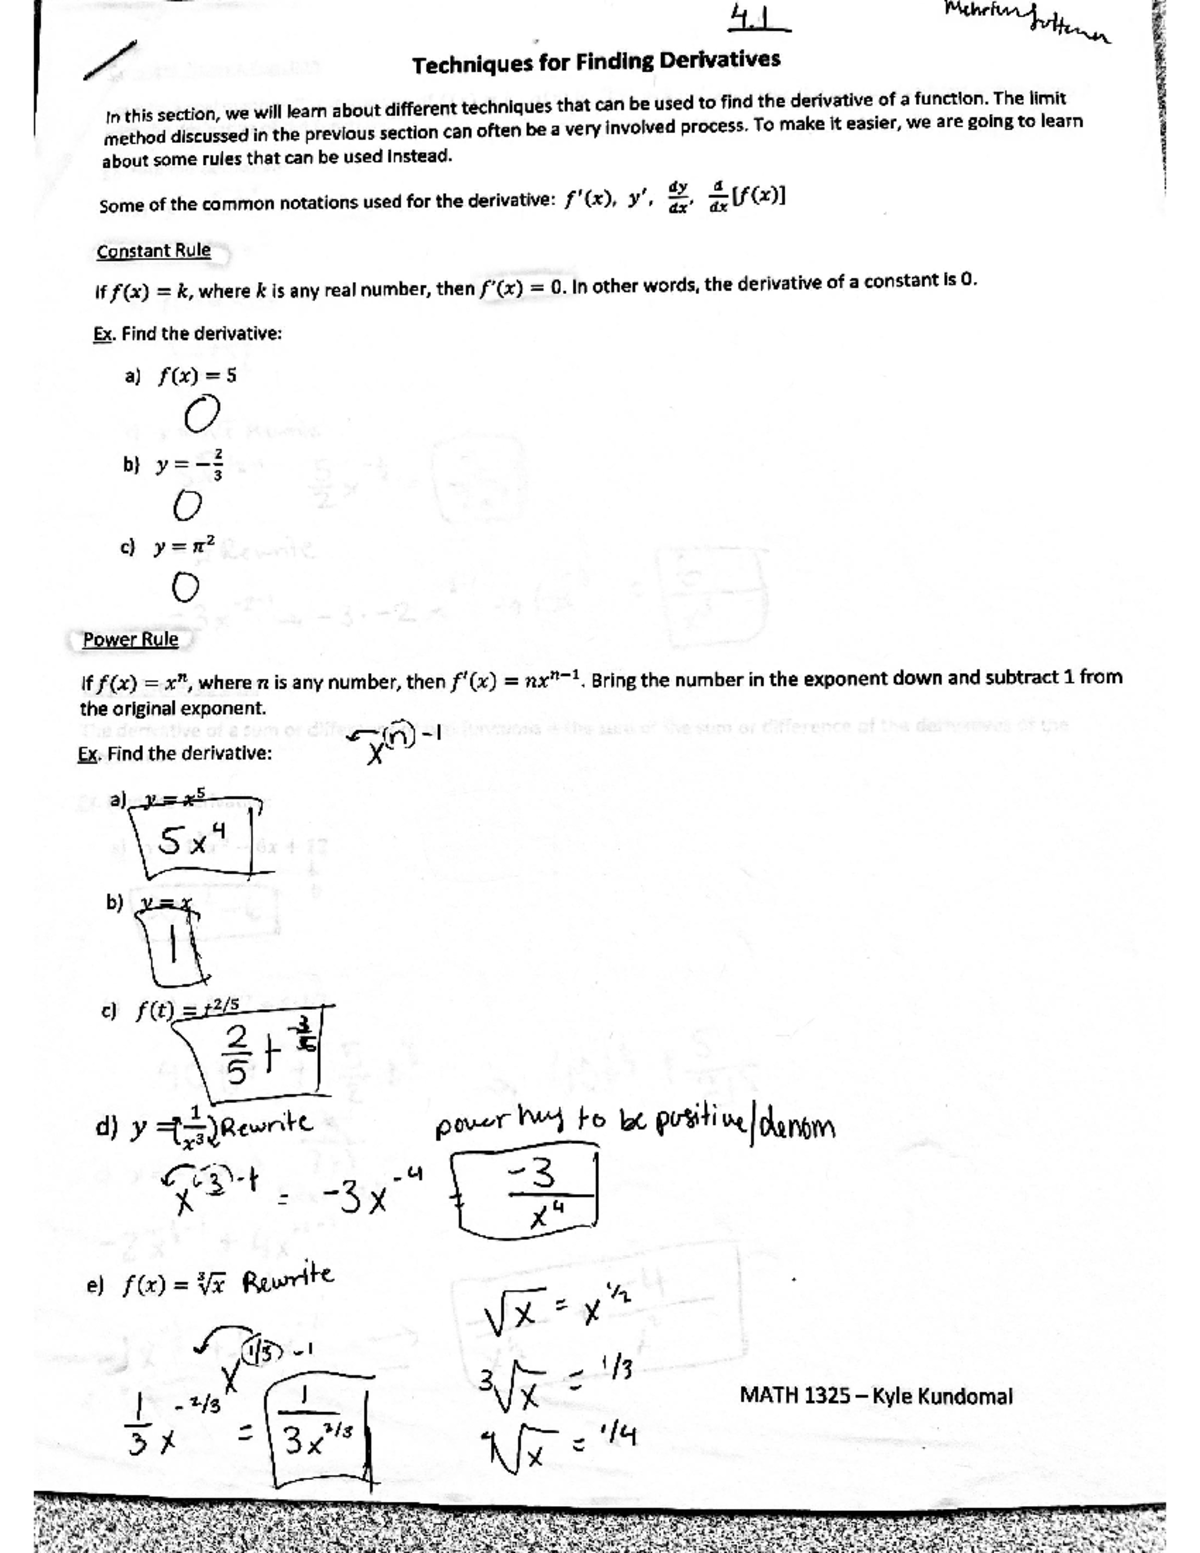 4.1
Techniques for Finding Derivatives
In this section, we will learn about different techniques that can be used to find the derivative of a function. The limit
method discussed in the previous section can often be a very involved process. To make it easier, we are going to learn
about some rules that can be used instead.
Some of the common notations used for the derivative: f'(x), y', dy/dx, d/dx [f(x)]
Constant Rule
If f(x) = k, where k is any real number, then f'(x) = 0. In other words, the derivative of a constant is 0.
Ex. Find the derivative:
a) f(x) = 5
0
b) y = -2/3
0
c) y = π²
0
Power Rule
If f(x) = xⁿ, where n is any number, then f'(x) = nxⁿ⁻¹. Bring the number in the exponent down and subtract 1 from
the original exponent.
x^(n)-1
Ex. Find the derivative:
a) y = x⁵
5x⁴
b) y = x
1
c) f(t) = t^2/5
2/5 t^-3/5
d) y = (1/x³) Rewrite
power hey to be positive/denom
x^(-3)-1 = -3x^-4 = -3/x⁴
e) f(x) = ∛x Rewrite
√x = x^1/2
x^(1/3)-1
3√x = 1/3
MATH 1325 – Kyle Kundomal
1/3 x^-2/3 = 1/3x^2/3
4√x = 1/4